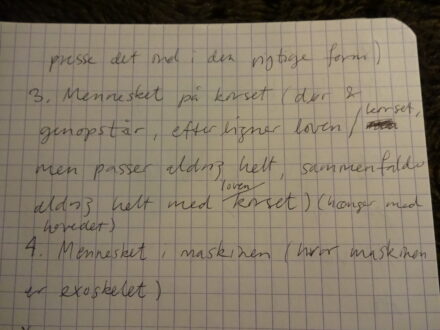 presse det ind i den rigtige form)
3. Mennesket på korset (dør &
genopstår, efterligner loven/korset,
men passer aldrig helt, sammenfalder
aldrig helt med loven/korset) (hænger med
hovedet)
4. Mennesket i maskinen (hvor maskinen
er exoskelet)